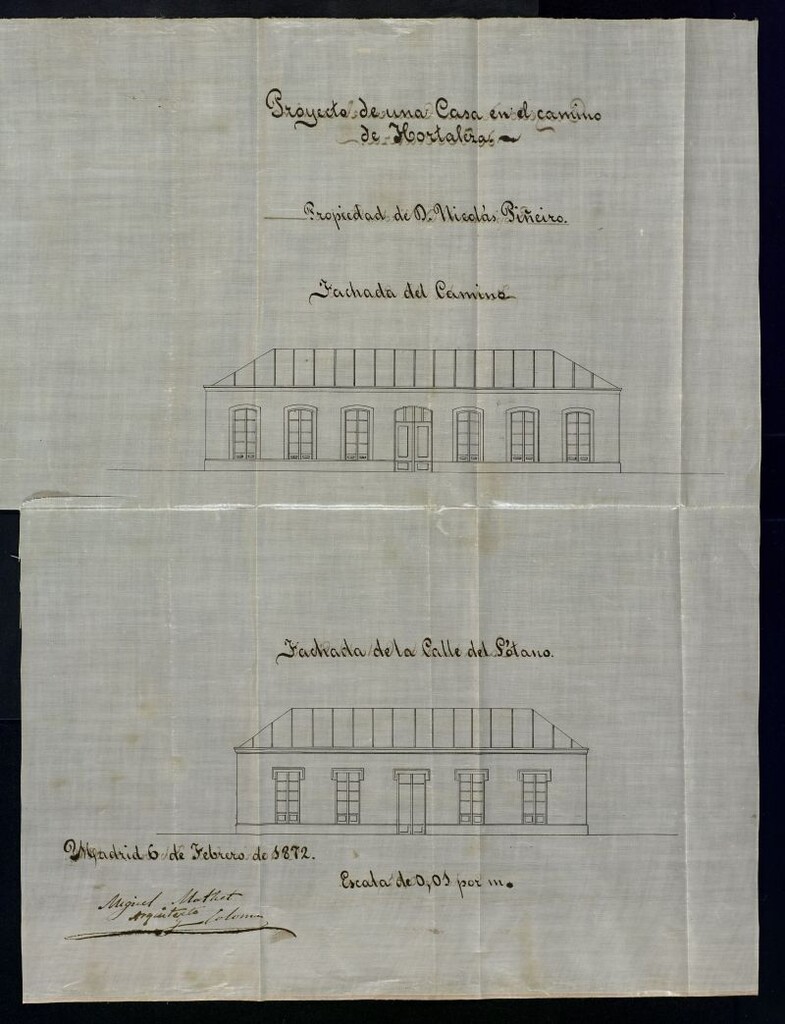 Proyecto de una Casa en el camino
de Hortaleza.
Propiedad de D. Nicolás Piñeiro.
Fachada del Camino
Fachada de la Calle del Pótano.
Madrid 6 de Febrero de 1872.
Escala de 0,01 por m.
Miguel Mathet
Arquitecto
y Coloma